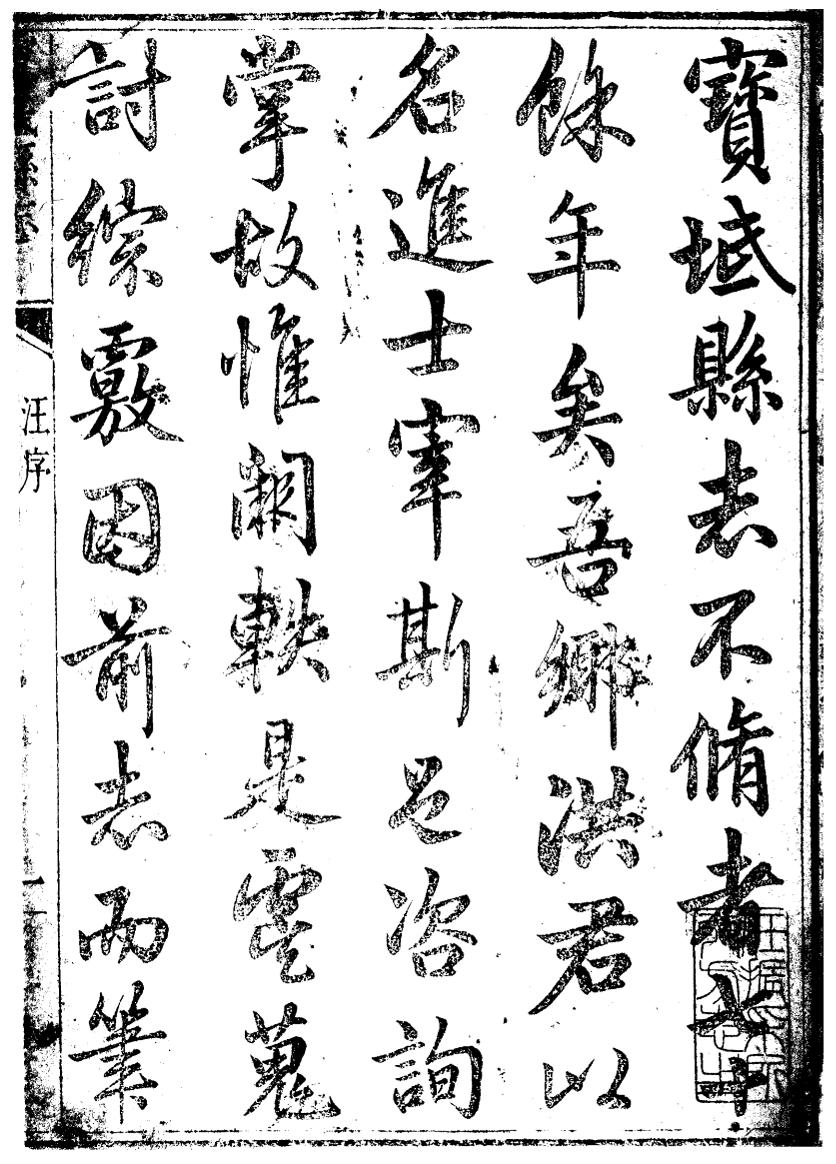 寶坻縣志不脩者七十
餘年矣吾鄉洪君以
名進士宰斯邑咨詢
掌故惟闕軼是虞蒐
討綜覈因前志而筆
汪序
一